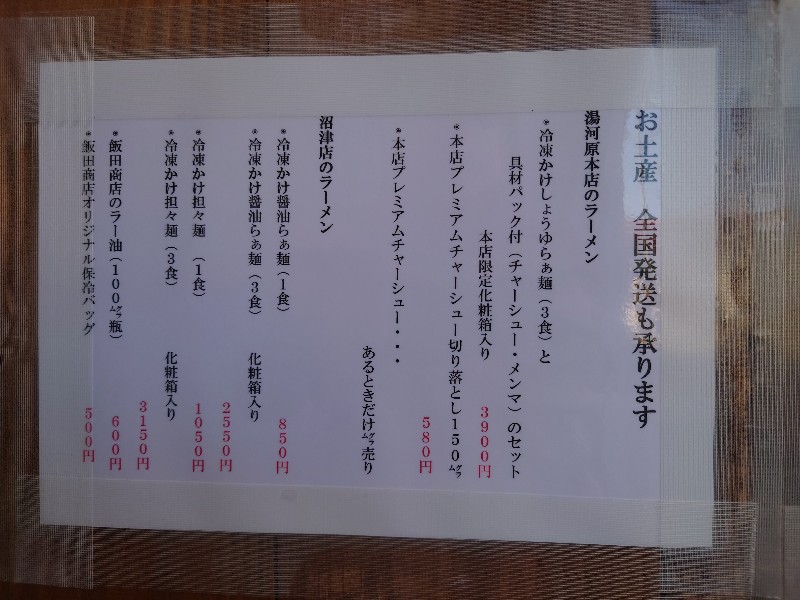 お土産　全国発送も承ります
湯河原本店のラーメン
*冷凍かけしょうゆらぁ麺（3食）と
具材パック付（チャーシュー・メンマ）のセット
本店限定化粧箱入り　3900円
*本店プレミアムチャーシュー切り落とし150㌘
580円
*本店プレミアムチャーシュー・・・
あるときだけ㌘売り
沼津店のラーメン
*冷凍かけ醤油らぁ麺（1食）　850円
*冷凍かけ醤油らぁ麺（3食）　化粧箱入り
2550円
*冷凍かけ担々麺　（1食）　1050円
*冷凍かけ担々麺（3食）　化粧箱入り
3150円
*飯田商店のラー油（100㌘瓶）　600円
*飯田商店オリジナル保冷バッグ　500円